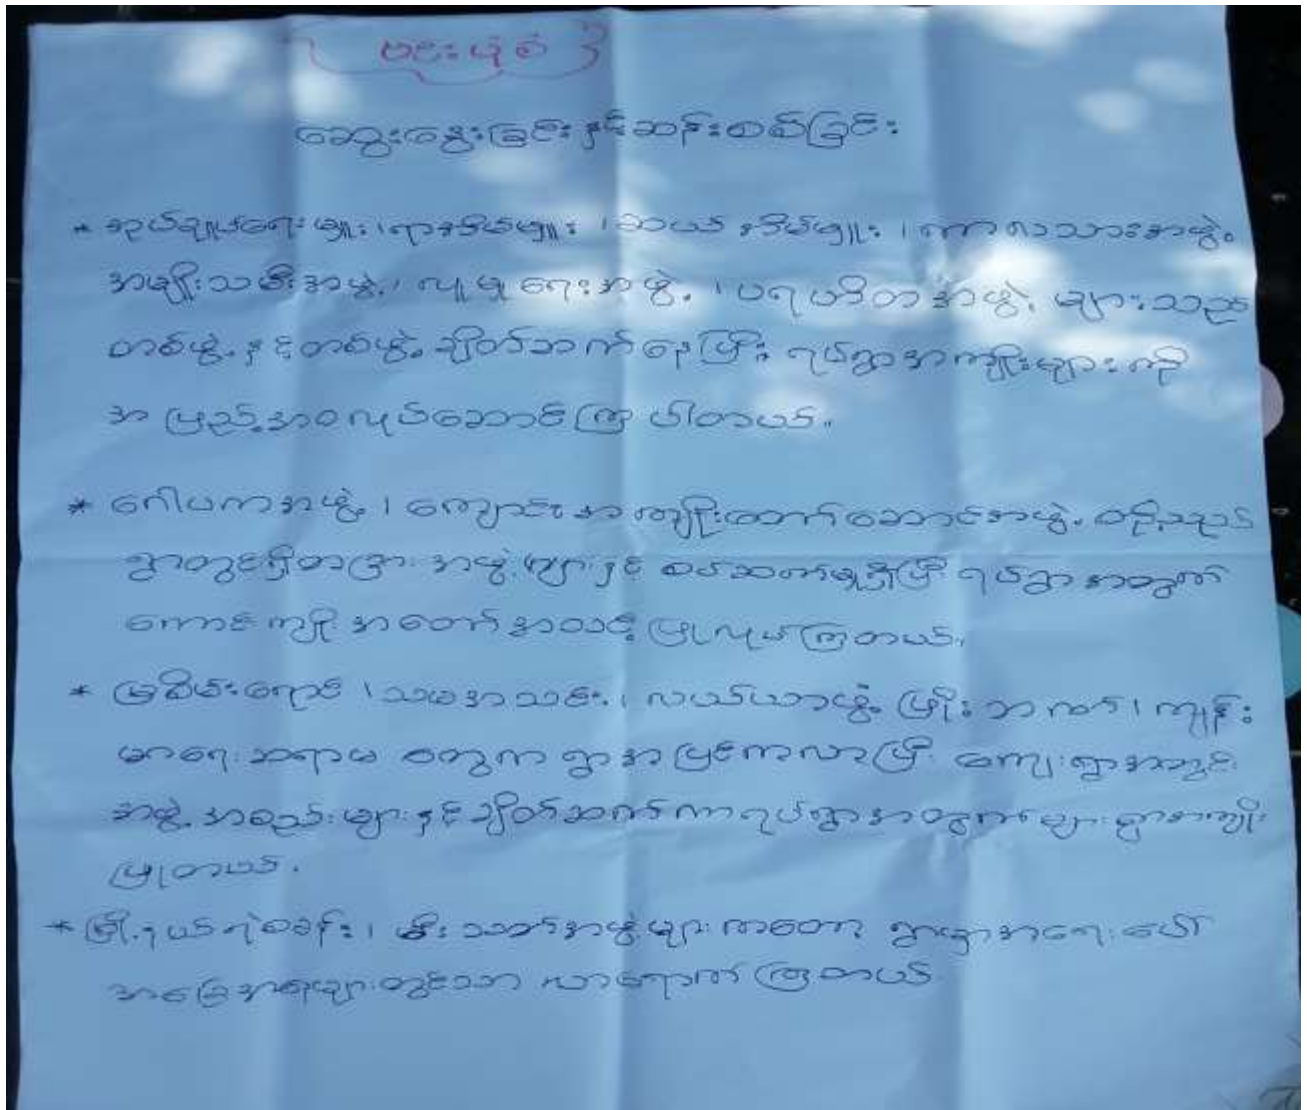 ဗင်းပုံစံ
ဆွေးနွေးခြင်းနှင့်ဆန်းစစ်ခြင်း
* အုပ်ချုပ်ရေးမှူး၊ ရာအိမ်မှူး၊ ဆယ်အိမ်မှူး၊ ကာလသားအဖွဲ့
အမျိုးသမီးအဖွဲ့၊ လူမှုရေးအဖွဲ့၊ ပရဟိတအဖွဲ့ များသည်
တစ်ဖွဲ့နှင့်တစ်ဖွဲ့ ချိတ်ဆက်နေပြီး ရပ်ရွာအကျိုးများကို
အပြည့်အဝလုပ်ဆောင်ကြပါတယ်။
* ဂေါပကအဖွဲ့၊ ကျောင်းအကျိုးတော်ဆောင်အဖွဲ့ စသည်
ရွာတွင်ရှိတခြားအဖွဲ့များနှင့် စပ်ဆက်မှုရှိပြီး ရပ်ရွာအတွက်
ကောင်းကျိုးအတော်အသင့်ပြုလုပ်ကြတယ်။
* မြစိမ်းရောင်၊ သမအသင်း၊ လယ်ယာဖွံ့ဖြိုးဘဏ်၊ ကျန်း
မာရေးဆရာမ တွေက ရွာအပြင်ကလာပြီး ကျေးရွာအတွင်း
အဖွဲ့အစည်းများနှင့်ချိတ်ဆက်ကာ ရပ်ရွာအတွက်များစွာအကျိုး
ပြုတယ်။
* မြို့နယ်ရဲစခန်း၊ မီးသတ်အဖွဲ့များကတော့ ရွာမှာအရေးပေါ်
အခြေအနေများတွင်သာ လာရောက်ကြတယ်